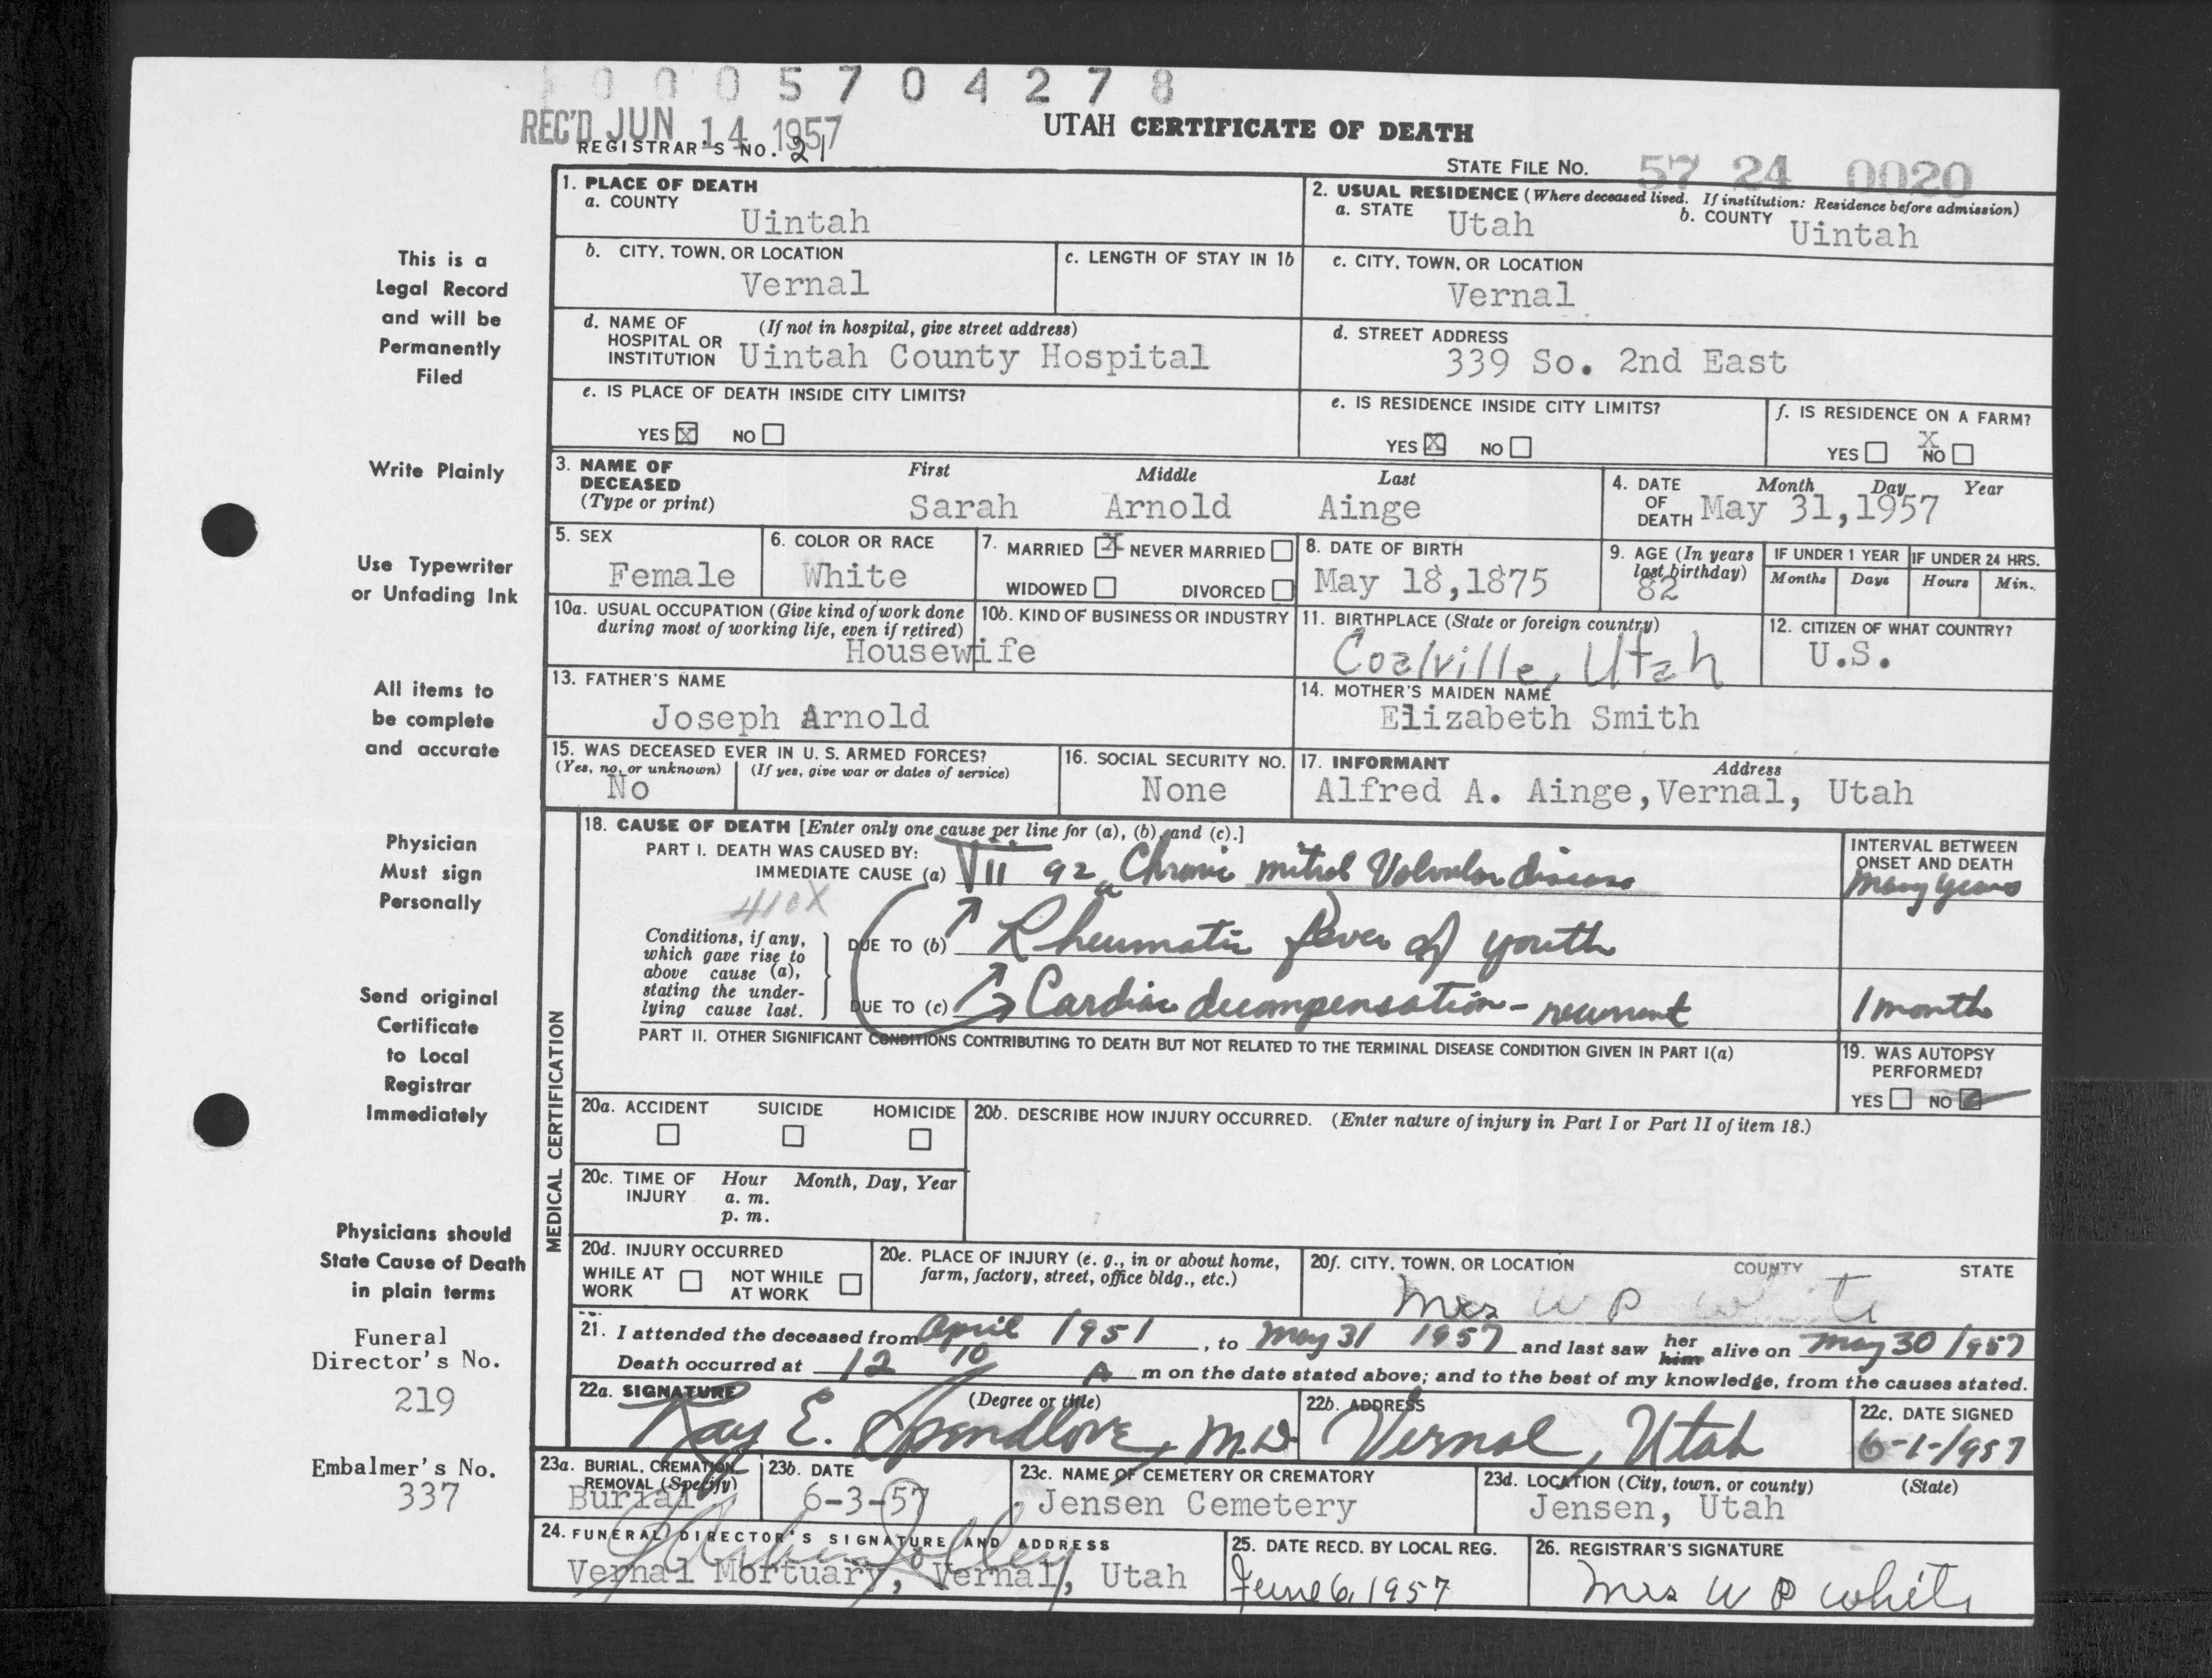 0 0 0 5 7 0 4 2 7 8
REC'D JUN 14 1957
UTAH CERTIFICATE OF DEATH
REGISTRAR'S NO. 21
STATE FILE NO. 57 24 0020
This is a
Legal Record
and will be
Permanently
Filed
Write Plainly
Use Typewriter
or Unfading Ink
All items to
be complete
and accurate
Physician
Must sign
Personally
Send original
Certificate
to Local
Registrar
Immediately
Physicians should
State Cause of Death
in plain terms
Funeral
Director's No.
219
Embalmer's No.
337
1. PLACE OF DEATH
a. COUNTY
Uintah
2. USUAL RESIDENCE (Where deceased lived. If institution: Residence before admission)
a. STATE Utah b. COUNTY Uintah
b. CITY, TOWN, OR LOCATION
Vernal
c. LENGTH OF STAY IN 1b
c. CITY, TOWN, OR LOCATION
Vernal
d. NAME OF (If not in hospital, give street address)
HOSPITAL OR
INSTITUTION Uintah County Hospital
d. STREET ADDRESS
339 So. 2nd East
e. IS PLACE OF DEATH INSIDE CITY LIMITS?
YES X NO
e. IS RESIDENCE INSIDE CITY LIMITS?
YES X NO
f. IS RESIDENCE ON A FARM?
YES X NO
3. NAME OF DECEASED (Type or print)
First Middle Last
Sarah Arnold Ainge
4. DATE OF DEATH
Month Day Year
May 31,1957
5. SEX
Female
6. COLOR OR RACE
White
7. MARRIED X NEVER MARRIED
WIDOWED DIVORCED
8. DATE OF BIRTH
May 18,1875
9. AGE (In years last birthday)
82
IF UNDER 1 YEAR
Months Days
IF UNDER 24 HRS.
Hours Min.
10a. USUAL OCCUPATION (Give kind of work done
during most of working life, even if retired)
Housewife
10b. KIND OF BUSINESS OR INDUSTRY
11. BIRTHPLACE (State or foreign country)
Coalville, Utah
12. CITIZEN OF WHAT COUNTRY?
U.S.
13. FATHER'S NAME
Joseph Arnold
14. MOTHER'S MAIDEN NAME
Elizabeth Smith
15. WAS DECEASED EVER IN U. S. ARMED FORCES?
(Yes, no, or unknown) (If yes, give war or dates of service)
No
16. SOCIAL SECURITY NO.
None
17. INFORMANT Address
Alfred A. Ainge, Vernal, Utah
MEDICAL CERTIFICATION
18. CAUSE OF DEATH [Enter only one cause per line for (a), (b), and (c).]
PART I. DEATH WAS CAUSED BY:
IMMEDIATE CAUSE (a) VII 92a Chronic mitral Valvular disease
410X
INTERVAL BETWEEN
ONSET AND DEATH
Many years
Conditions, if any,
which gave rise to
above cause (a),
stating the under-
lying cause last.
DUE TO (b) Rheumatic fever of youth
DUE TO (c) Cardiac decompensation - recurrent
1 month
PART II. OTHER SIGNIFICANT CONDITIONS CONTRIBUTING TO DEATH BUT NOT RELATED TO THE TERMINAL DISEASE CONDITION GIVEN IN PART I(a)
19. WAS AUTOPSY
PERFORMED?
YES NO
20a. ACCIDENT SUICIDE HOMICIDE
20b. DESCRIBE HOW INJURY OCCURRED. (Enter nature of injury in Part I or Part II of item 18.)
20c. TIME OF INJURY
Hour Month, Day, Year
a. m.
p. m.
20d. INJURY OCCURRED
WHILE AT WORK NOT WHILE AT WORK
20e. PLACE OF INJURY (e. g., in or about home,
farm, factory, street, office bldg., etc.)
20f. CITY, TOWN, OR LOCATION COUNTY STATE
Mrs W P White
21. I attended the deceased from April 1951, to May 31 1957 and last saw her him alive on May 30 1957
Death occurred at 12 10 A m on the date stated above; and to the best of my knowledge, from the causes stated.
22a. SIGNATURE (Degree or title)
Ray E. Spendlove, M.D.
22b. ADDRESS
Vernal, Utah
22c. DATE SIGNED
6-1-1957
23a. BURIAL, CREMATION,
REMOVAL (Specify)
Burial
23b. DATE
6-3-57
23c. NAME OF CEMETERY OR CREMATORY
Jensen Cemetery
23d. LOCATION (City, town, or county) (State)
Jensen, Utah
24. FUNERAL DIRECTOR'S SIGNATURE AND ADDRESS
Vernal Mortuary, Vernal, Utah
25. DATE RECD. BY LOCAL REG.
June 6, 1957
26. REGISTRAR'S SIGNATURE
Mrs W P White